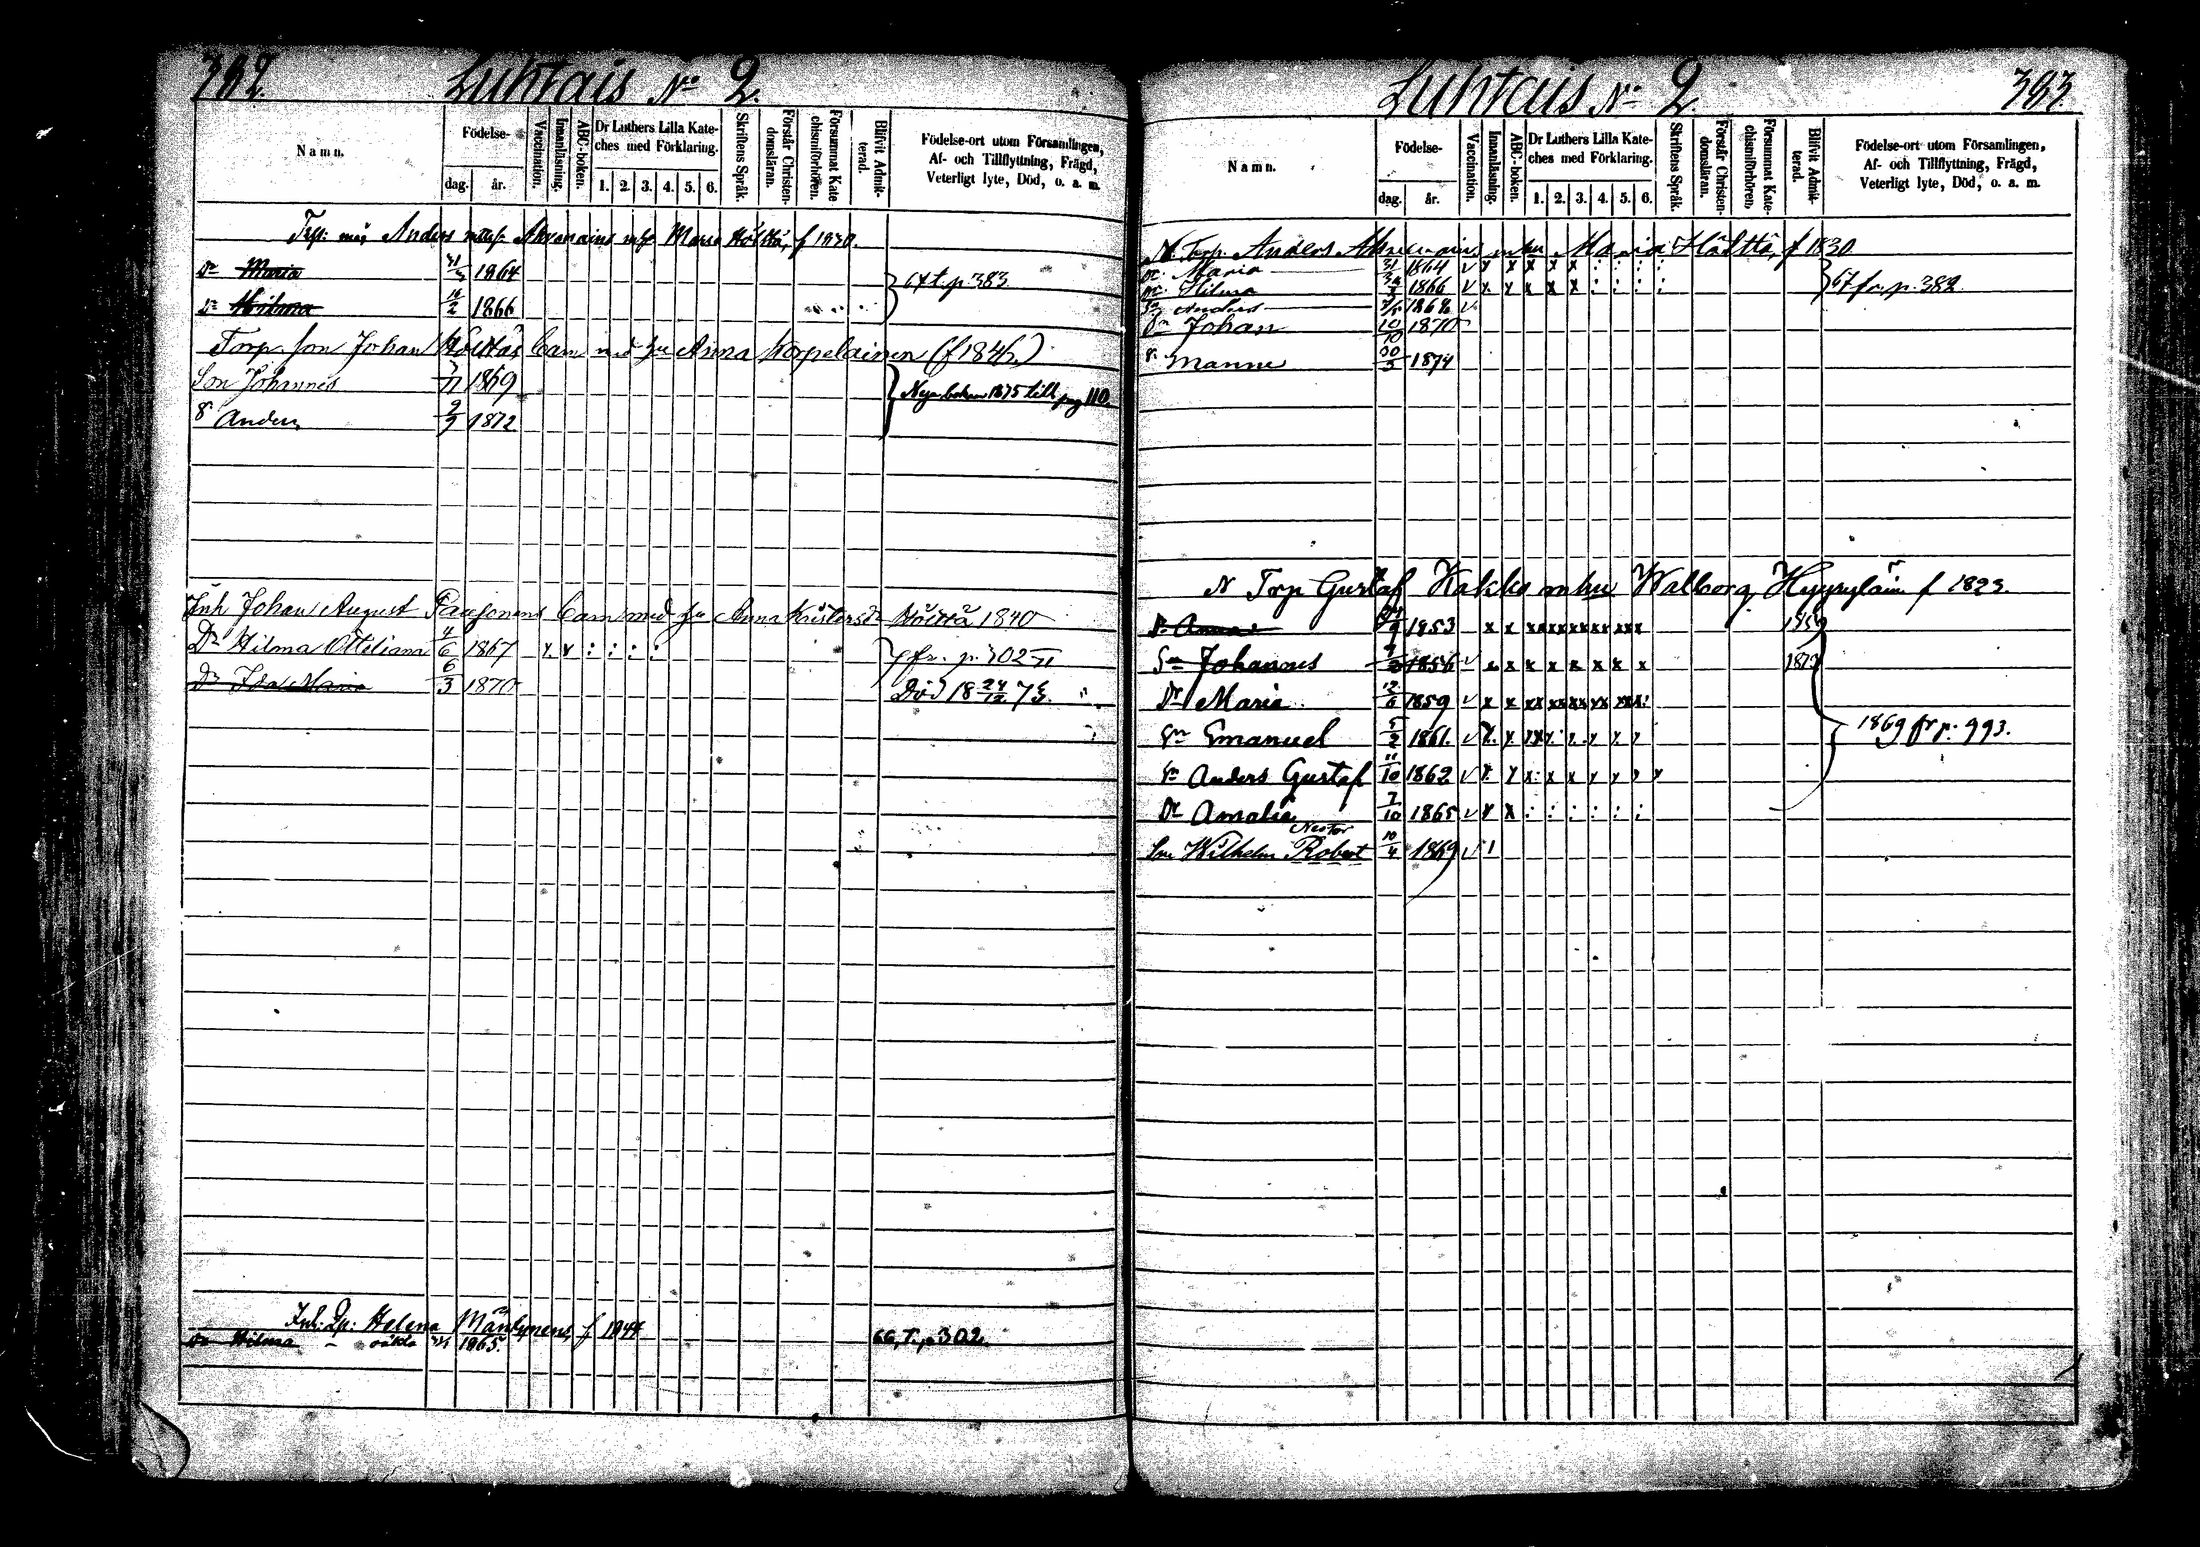 382.
Luhtais No 2.
Namn.
Födelse-
dag.
år.
Vaccination.
Innanläsning.
ABC-boken.
Dr Luthers Lilla Kate-
ches med Förklaring.
1. 2. 3. 4. 5. 6.
Skriftens Språk.
Förstår Christen-
domsläran.
Försummat Kate
chismiförhören.
Blifvit Admit-
terad.
Födelse-ort utom Församlingen,
Af- och Tillflyttning, Frägd,
Veterligt lyte, Död, o. a. m.
Anders Maria Höltta, f 1830.
Dr Maria 1864
67 t. p. 383
Dr Hilma 1866
Torp. son Johan Hölttäs barn med hu Anna Kopelainen (f 184
Son Johannes 1869
Nya boken 1875 till pag 110.
S. Anders 9/9 1872
Inh Johan August Paajonens barn med hu Anna Kristersdr Höltta 1840
Dr Hilma Ottiliana 4/6 1867
fr. p. 302
Dr Ida Maria 6/3 1870
Död 18 24/12 73.
Inh. Helena Mäntynens f 1844
Dr Hilma oäkta 1865.
66, T. p 302.
Luhtais No 2
383.
Namn.
Födelse-
dag.
år.
Vaccination.
Innanläsning.
ABC-boken.
Dr Luthers Lilla Kate-
ches med Förklaring.
1. 2. 3. 4. 5. 6.
Skriftens Språk.
Förstår Christen-
domsläran.
Försummat Kate-
chismiförhören.
Blifvit Admit-
terad.
Födelse-ort utom Församlingen,
Af- och Tillflyttning, Frägd,
Veterligt lyte, Död, o. a. m.
N Torp. Anders mhu Maria Hölttä, f 1830
Dr. Maria 1864
Dr. Hilma 1866
67 fr. p. 382.
Sn Anders 1868
Sn Johan 10/10 1870
S. Manne 30/3 1874
N Torp Gustaf Kakko mhu Walborg Hyyryläin f 1823.
Dr Anna 1853
Sn Johannes 1856
1873
Dr Maria 12/6 1859
Sn Emanuel 5/2 1861.
1869 fr p. 993.
Sn Anders Gustaf 11/10 1862
Dr Amalia 7/10 1865
Nestor
Sn Wilhelm Robert 10/4 1869